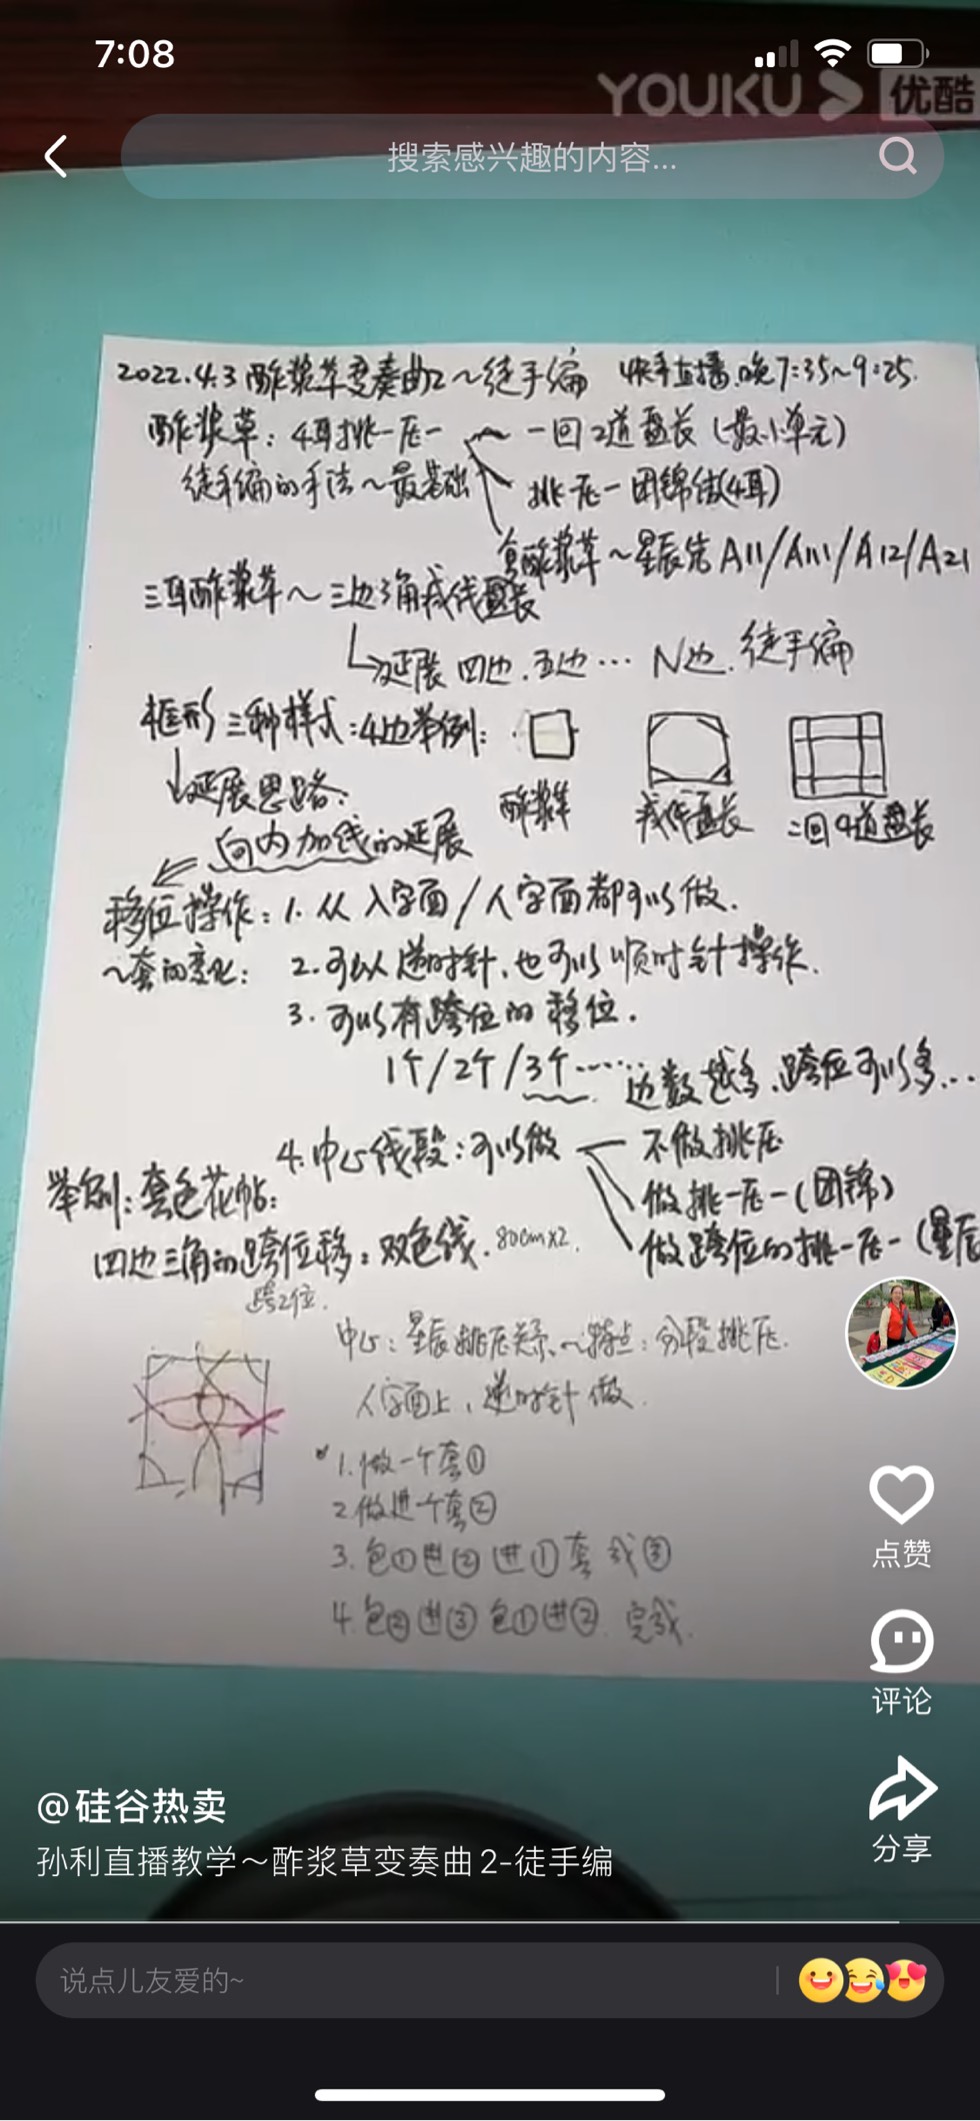 7:08
YOUKU 优酷
搜索感兴趣的内容...
2022.4.3 酢浆草变奏曲2～徒手编 快手直播.晚7:35～9:25.
酢浆草：4耳挑一压一 一回2道盘长(最小单元)
徒手编的手法～最基础 挑一压一团锦结(4耳)
复酢浆草～星辰结A11/A111/A12/A21
三耳酢浆草～三边三角戎线盘长
延展 四边.五边… N边.徒手编
框形三种样式：4边举例：
延展思路： 酢浆草 戎线盘长 二回4道盘长
向内加线的延展
移位操作：1.从入字面/人字面都可以做.
～套的变化： 2.可以逆时针,也可以顺时针操作.
3.可以有跨位的移位.
1个/2个/3个…… 边数越多,跨位可以多...
4.中心线段：可以做 不做挑压
举例：套色花帖： 做挑一压一(团锦)
四边三角的跨位移：双色线.80cm×2. 做跨位的挑一压一(星辰
跨2位.
中心：星辰挑压关系～特点：分段挑压.
人字面上,逆时针做.
1.做一个套①
2.做进一个套②
3.包①进②进①套成③
4.包②进③包①进②.完成.
点赞
评论
分享
@硅谷热卖
孙利直播教学～酢浆草变奏曲2-徒手编
说点儿友爱的~